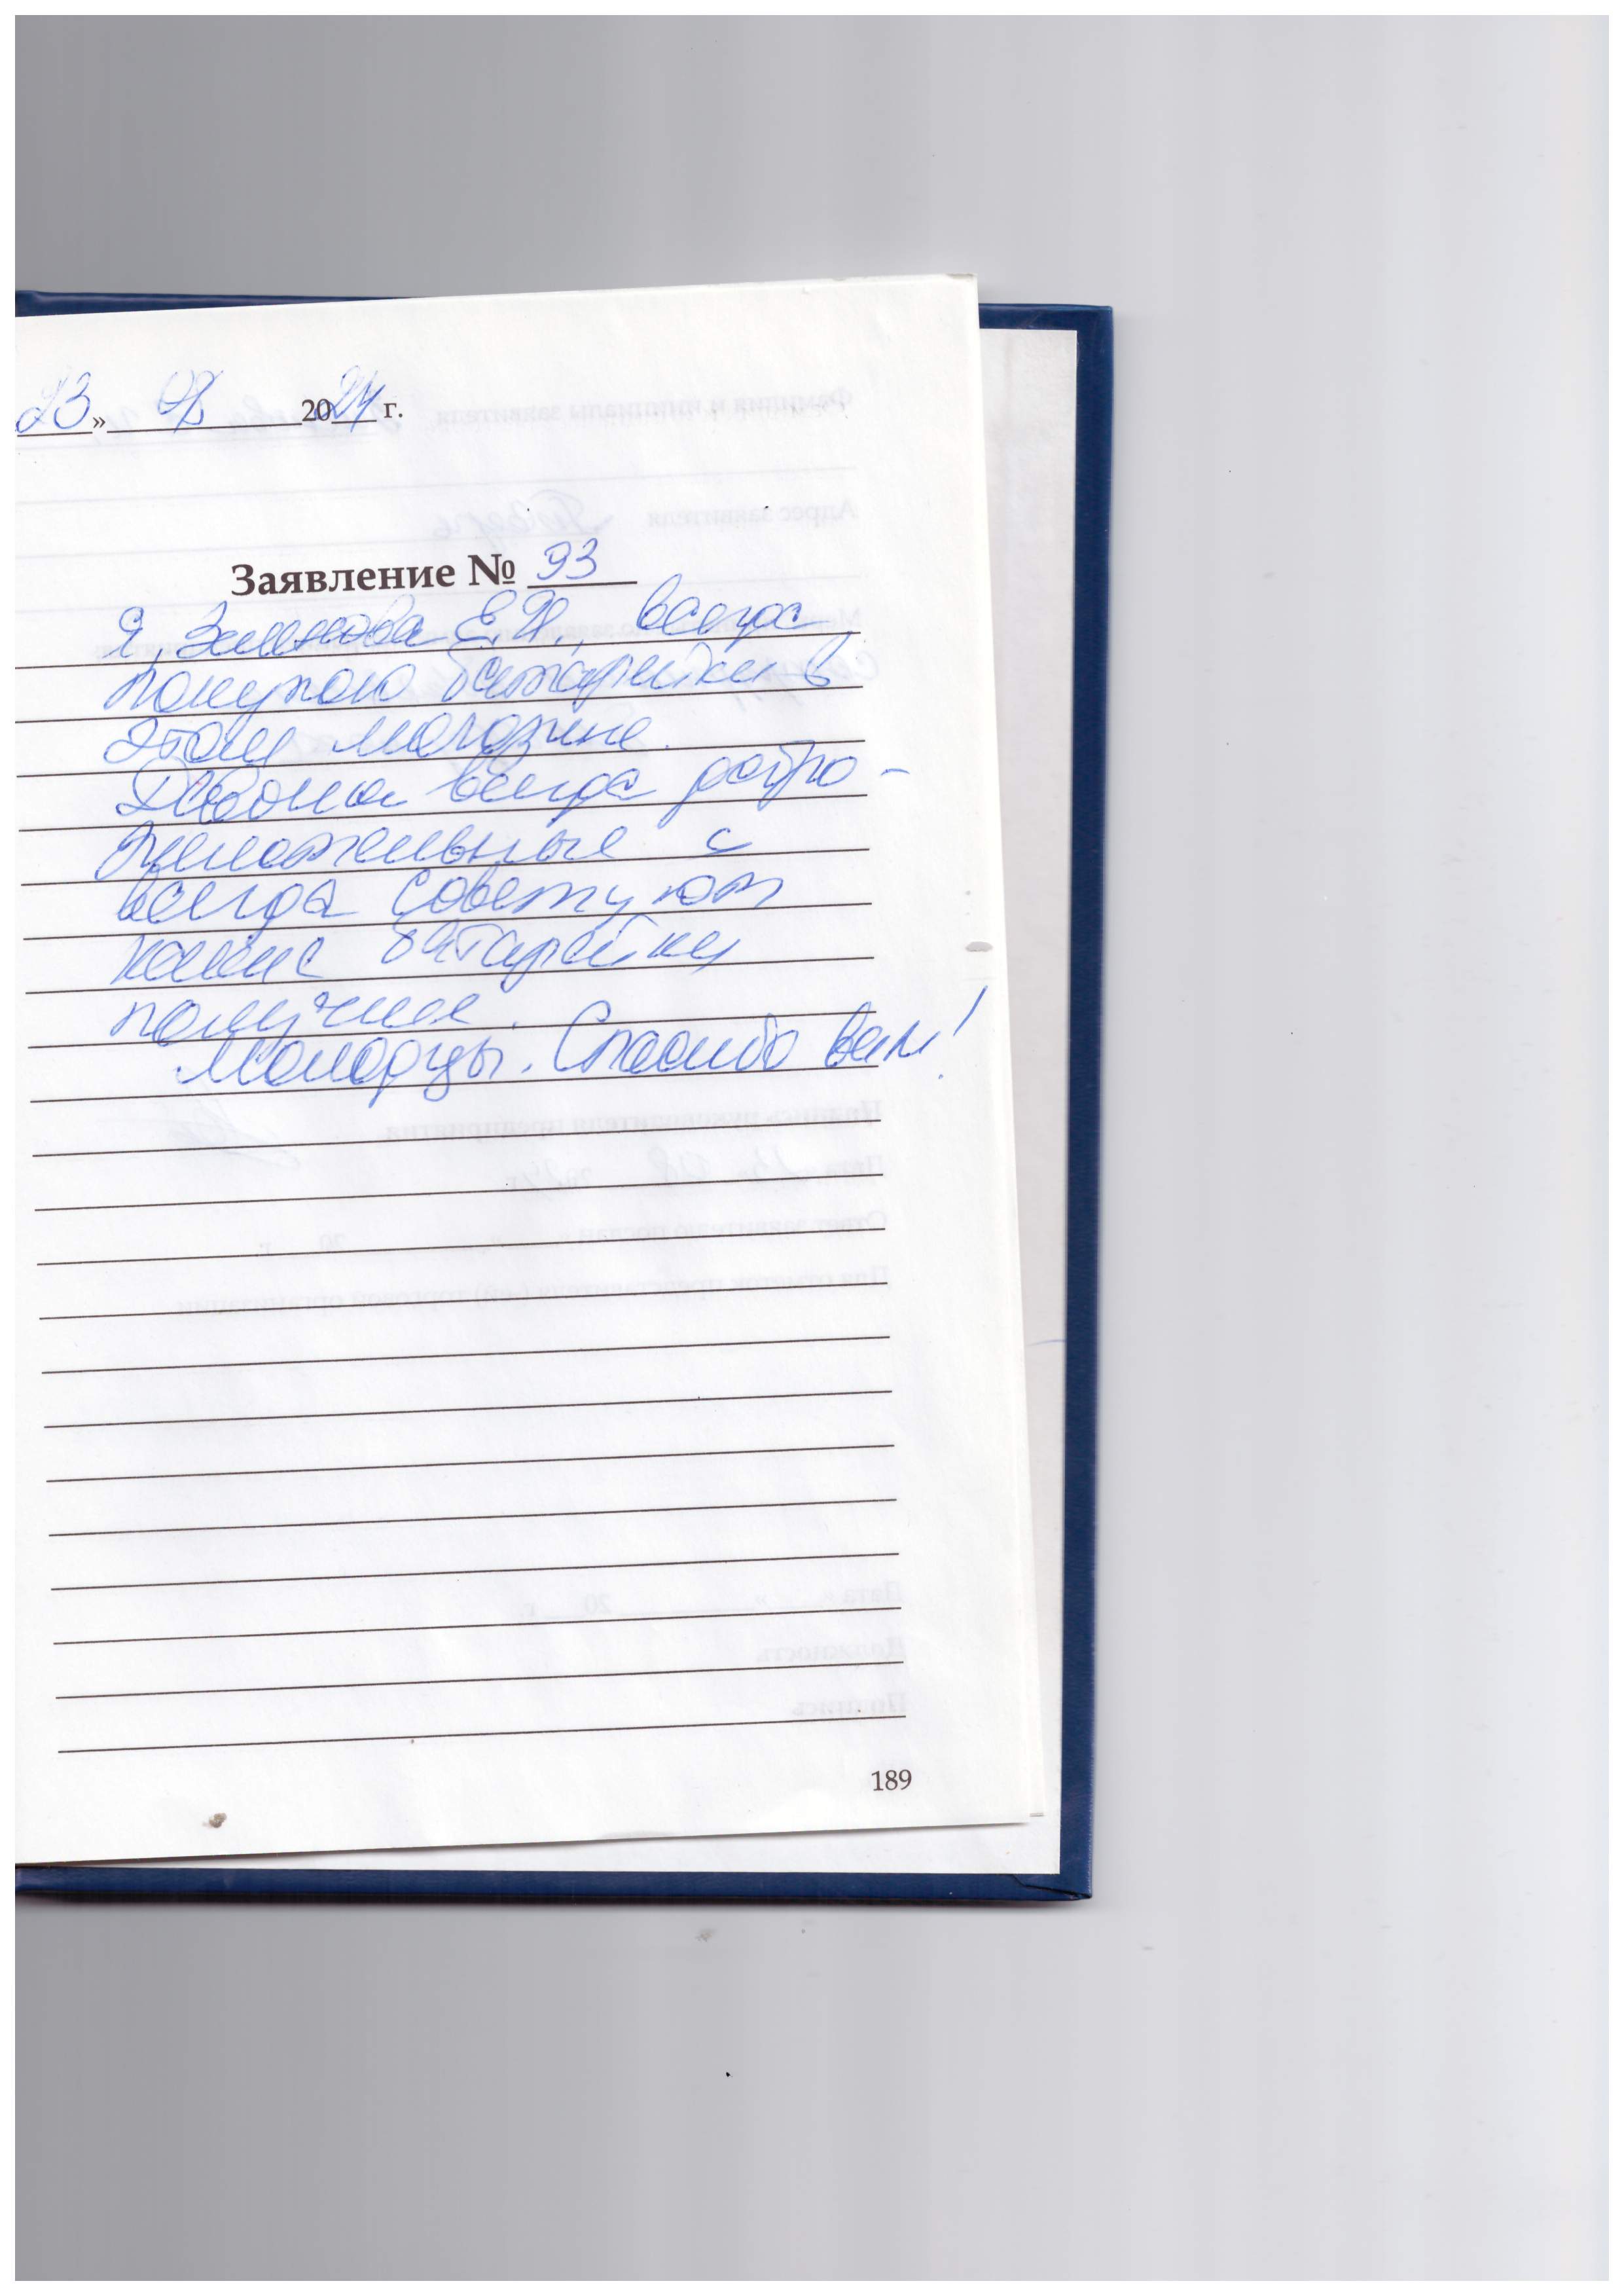 23» 08 2024 г.
Заявление № 93
Я, Е.Н., всегда
покупаю батарейки в
этом магазине.
Девочки всегда добро-
желательные и
всегда советуют
какие батарейки
получше.
Молодцы. Спасибо вам!
189